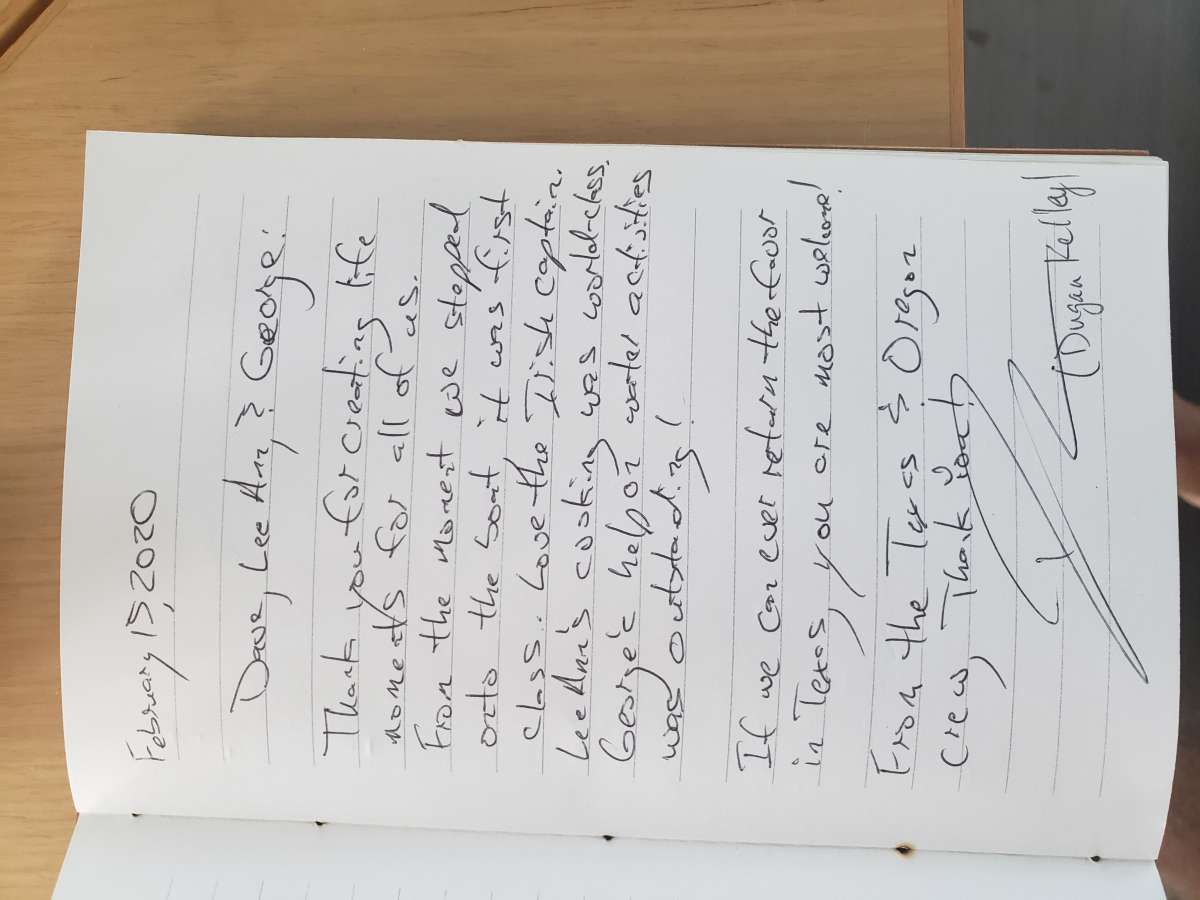 February 15, 2020
Dave, Lee Ann, & George:
Thank you for creating life
moments for all of us.
From the moment we stepped
onto the boat it was first
class. Love the Irish captain.
Lee Ann's cooking was world-class.
George's help on water activities
was outstanding!
If we can ever return the favor
in Texas, you are most welcome!
From the Texas & Oregon
crew, Thank you!
(Dugan Kelley)